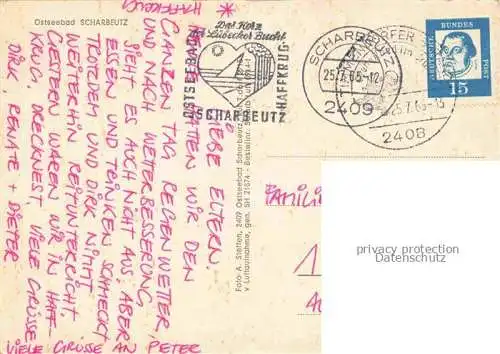 Ostseebad SCHARBEUTZ
* HAFFKRUG
LIEBE ELTERN.
HATTEN WIR DEN
GANZEN TAG REGENWETTER,
UND NACH WETTERBESSERUNG
SIEHT ES AUCH NICHT AUS. ABER
ESSEN UND TRINKEN SCHMECKT
TROTZDEM UND DIRK NIMMT
WEITERHIN REITUNTERRICHT.
GESTERN WAREN WIR IN HAFF-
KRUG, DRECKNEST VIELE GRÜSSE
DIRK, RENATE + DIETER
VIELE GRÜSSE AN PETER
Foto-A. Steffen, 2409 Ostseebad Scharbeutz
v Luftaufnahme, gen. SH 21674 - Bestellnr.
Das Herz
der Lübecker Bucht
OSTSEEBAD
SCHARBEUTZ
HAFFKRUG
SCHARBEUTZ
25.7.65-12
2409
25.7.65-13
2408
DEUTSCHE
BUNDES
POST
15
FAMILIE
privacy protection
Datenschutz